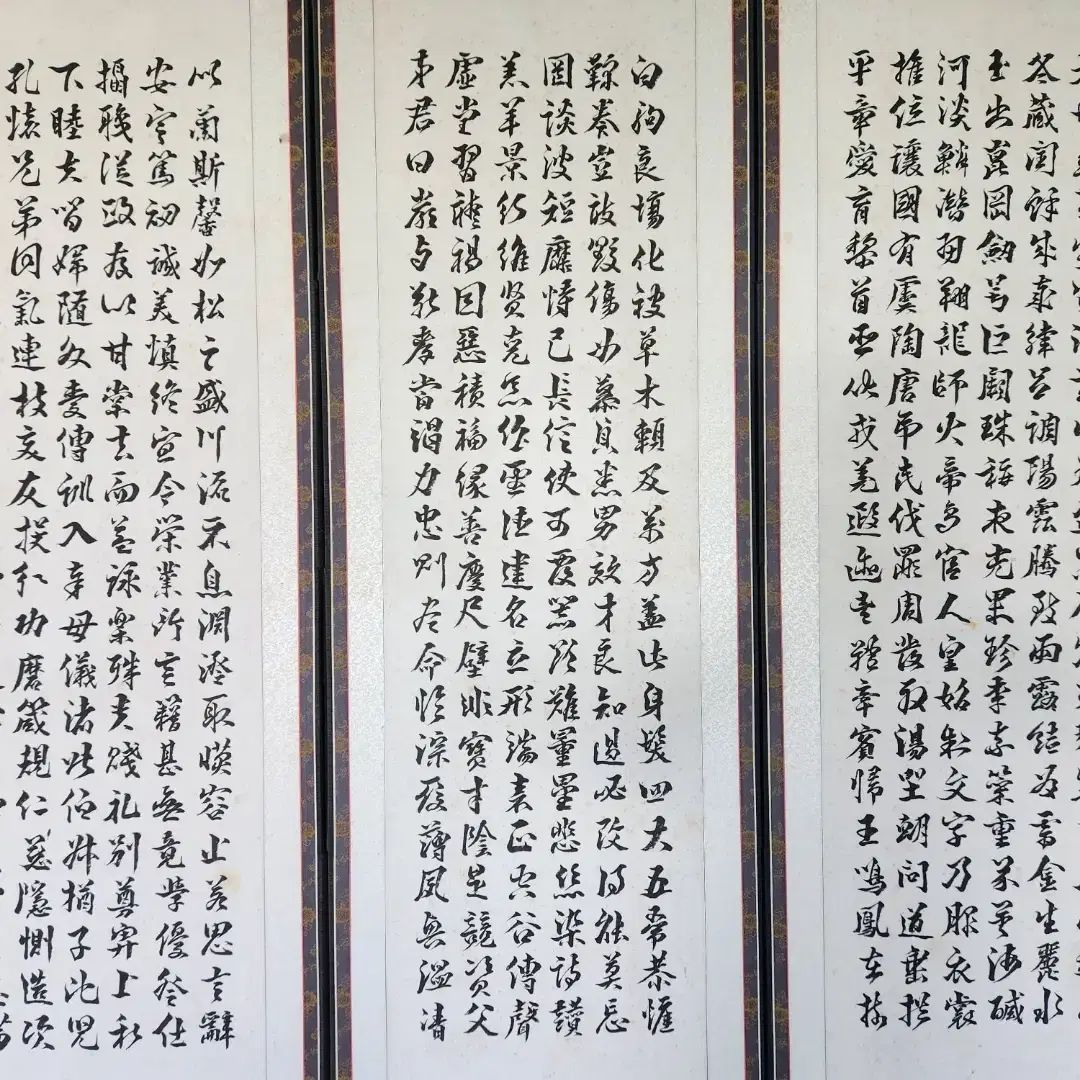 冬藏閏餘成歲律呂調陽雲騰致雨露結為霜金生麗水
玉出崑岡劍号巨闕珠稱夜光果珍李柰菜重芥薑海鹹
河淡鱗潛羽翔龍師火帝鳥官人皇始制文字乃服衣裳
推位讓國有虞陶唐弔民伐罪周發殷湯坐朝問道垂拱
平章愛育黎首臣伏戎羌遐邇壹體率賓歸王鳴鳳在樹
白駒食場化被草木賴及萬方蓋此身髮四大五常恭惟
鞠養豈敢毀傷女慕貞絜男效才良知過必改得能莫忘
罔談彼短靡恃己長信使可覆器欲難量墨悲絲染詩讚
羔羊景行維賢克念作聖德建名立形端表正空谷傳聲
虛堂習聽禍因惡積福緣善慶尺璧非寶寸陰是競資父
事君曰嚴与敬孝當竭力忠則盡命臨深履薄夙興溫凊
似蘭斯馨如松之盛川流不息淵澄取暎容止若思言辭
安定篤初誠美慎終宜令榮業所基籍甚無竟學優登仕
攝職從政存以甘棠去而益詠樂殊貴賤礼別尊卑上和
下睦夫唱婦隨外受傅訓入奉母儀諸姑伯叔猶子比兒
孔懷兄弟同氣連枝交友投分切磨箴規仁慈隱惻造次